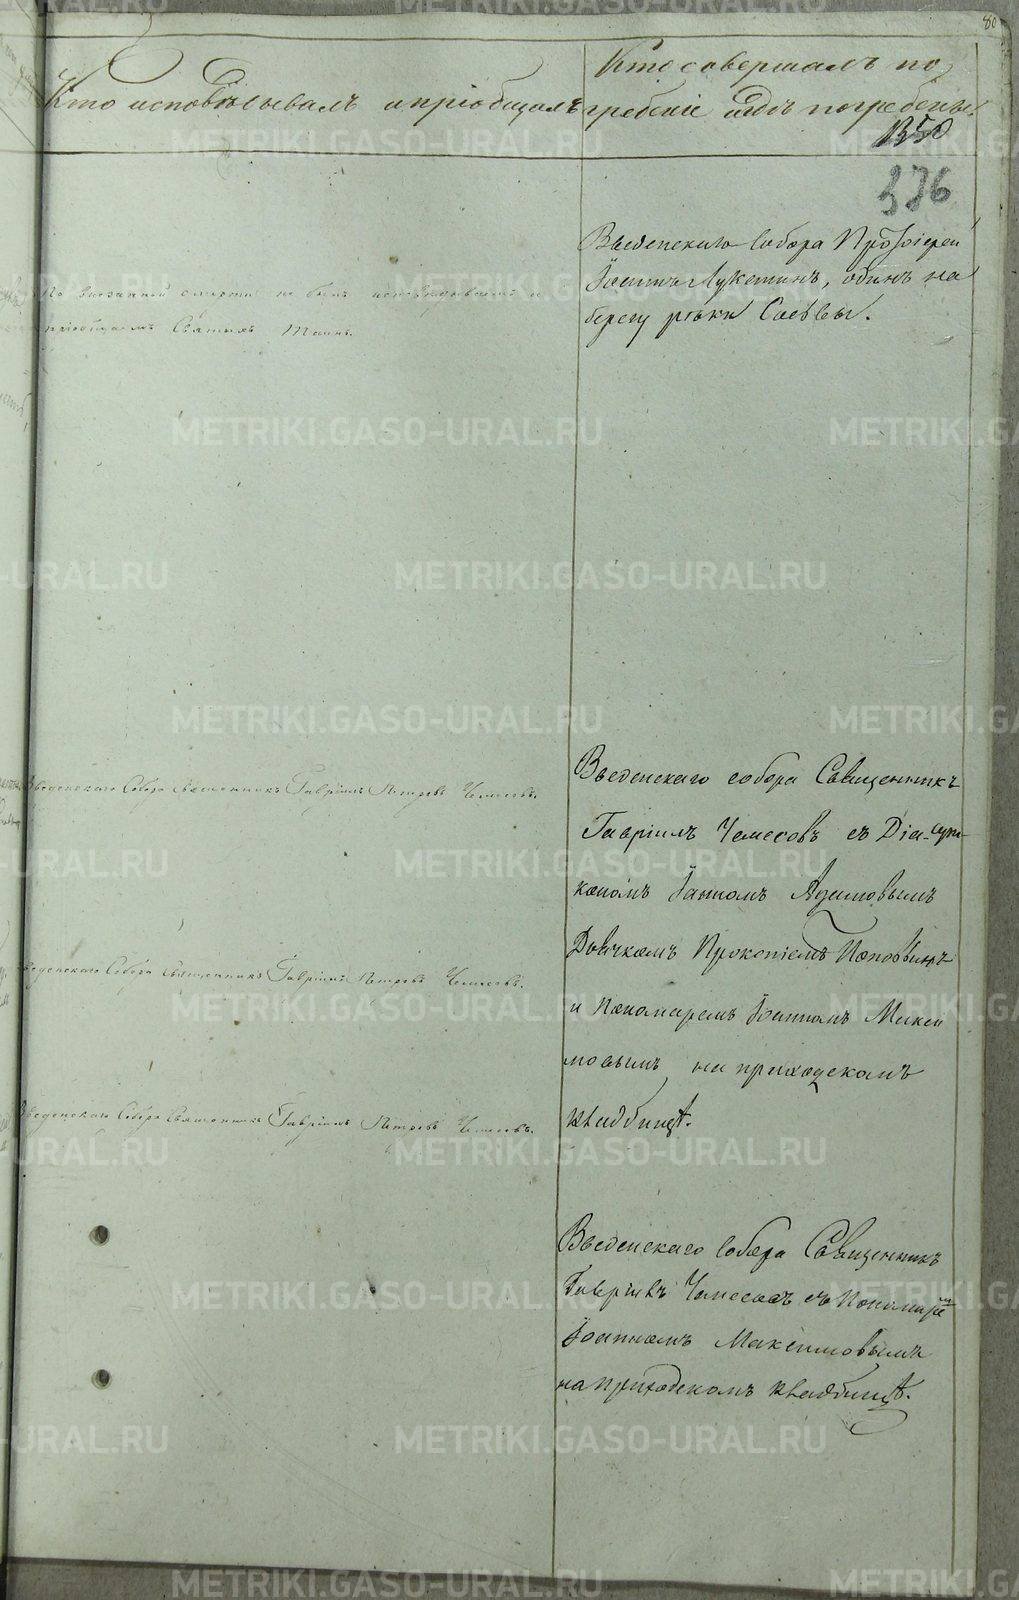 80
Кто исповѣдывалъ и пріобщалъ
Кто совершалъ по
гребеніе и гдѣ погребены.
1350
376
По внезапной смерти не былъ исповѣдыванъ и
пріобщенъ Святыхъ Таинъ.
Введенскаго Собора Протоіерей
Іоаннъ Лукинъ, одинъ на
берегу рѣки Сосьвы.
Введенскаго Собора Священникъ Гавріилъ Петровъ Чемесовъ.
Введенскаго Собора Священникъ Гавріилъ Петровъ Чемесовъ.
Введенскаго Собора Священникъ Гавріилъ Петровъ Чемесовъ.
Введенскаго собора Священникъ
Гавріилъ Чемесовъ съ Діа-
кономъ Іоанномъ Адамовымъ
Дьячкомъ Прокопіемъ Поповымъ
и Пономаремъ Іоанномъ Макси
мовымъ на приходскомъ
кладбищѣ.
Введенскаго Собора Священникъ
Гавріилъ Чемесовъ съ Пономаремъ
Іоанномъ Максимовымъ
на приходскомъ кладбищѣ.
METRIKI.GASO-URAL.RU